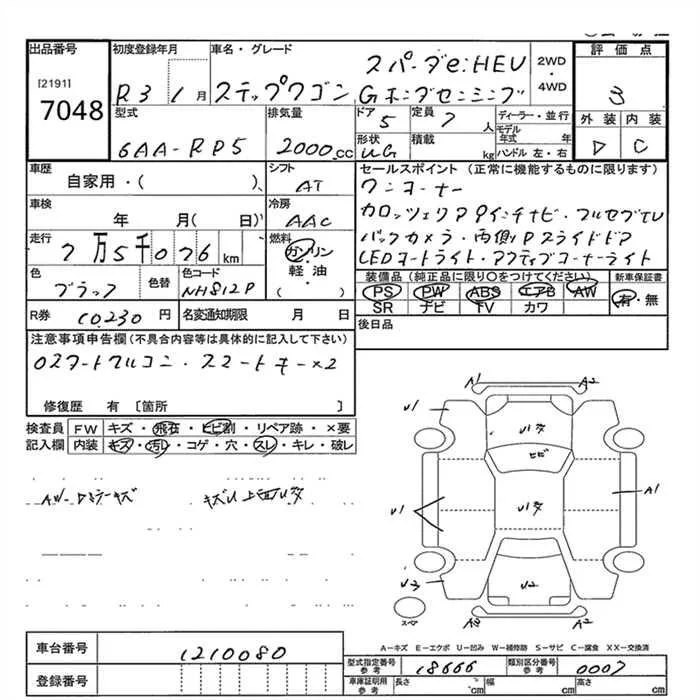 出品番号
[2191]
7048
初度登録年月
R3 1月
車名・グレード
ステップワゴン
スパーダe:HEV
Gホンダセンシング
2WD
・
4WD
評価点
3
外装 内装
D C
型式
6AA-RP5
排気量
2000cc
ドア
5
定員
7人
形状
UG
積載
kg
ディーラー・並行
モデル年式 年
ハンドル 左・右
車歴
自家用・( )
シフト
AT
セールスポイント (正常に機能するものに限ります)
ワンオーナー
カロッツェリア 9インチナビ・フルセグTV
バックカメラ・両側Pスライドドア
LEDオートライト・アクティブコーナーライト
車検
年 月( 日)
冷房
AAC
走行
7万5千026km
燃料
ガソリン
軽油
( )
色
ブラック
色替
色コード
NH812P
装備品 (純正品に限り○をつけてください)
PS PW ABS エアB AW
SR ナビ TV カワ
新車保証書
有・無
R券 10,230円
名変通知期限 月 日
後日品
注意事項申告欄(不具合内容等は具体的に記入して下さい)
○スタートリルコン・スマートキー×2
修復歴 有 [箇所 ]
検査員 FW キズ・飛石・ヒビ割・リペア跡・×要
記入欄 内装 キズ・汚レ・コゲ・穴・スレ・キレ・破レ
AW-Dミラーキズ
キズU上面U多
A1 A2
U1
U1多
ヒビ
U1
U1多
A1
U3
U2
スペア
A3 A2
A-キズ E-エクボ U-凹み W-補修跡 S-サビ C-腐食 XX-交換済
車台番号 1210080
登録番号
型式指定番号 参考 18666
類別区分番号 参考 0007
車庫証明用 参考 長さ cm 幅 cm 高さ cm